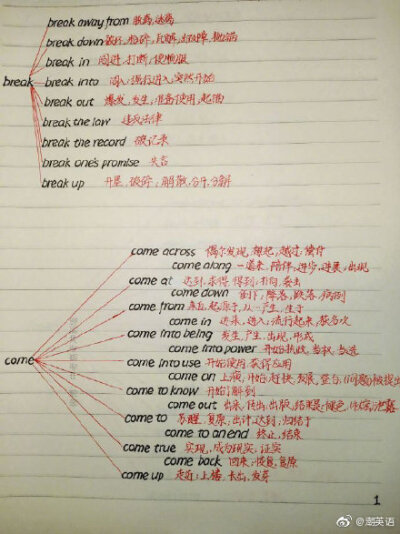 break away from 脱离,逃离
break down 破坏,粉碎,瓦解,出故障,抛锚
break in 闯进,打断,使顺服
break
break into 闯入,强行进入,突然开始
break out 爆发,发生,准备使用,起泡
break the law 违反法律
break the record 破记录
break one's promise 失言
break up 开垦,破碎,解散,分开,分解
come across 偶尔发现,想起,越过,偿付
come along 一道来,陪伴,进步,进展,出现
come at 达到,求得,得到,扑向,袭击
come down 倒下,降落,跌落,病倒
come from 来自,起源于,从…产生,生于
come in 进来,进入,流行起来,获名次
come into being 发生,产生,出现,形成
come into power 开始执政,当权,当选
come
come into use 开始使用,获得应用
come on 上演,开始,赶快,发展,登台,(问题)被提出
come to know 开始了解到
come out 出来,传出,出版,结果是,褪色,(秘密)泄露
come to 苏醒,复原,共计,达到,归结于
come to an end 终止,结束
come true 实现,成为现实,证实
come back 回来,恢复,复原
come up 走近,上楼,长出,发芽
1
@潮英语